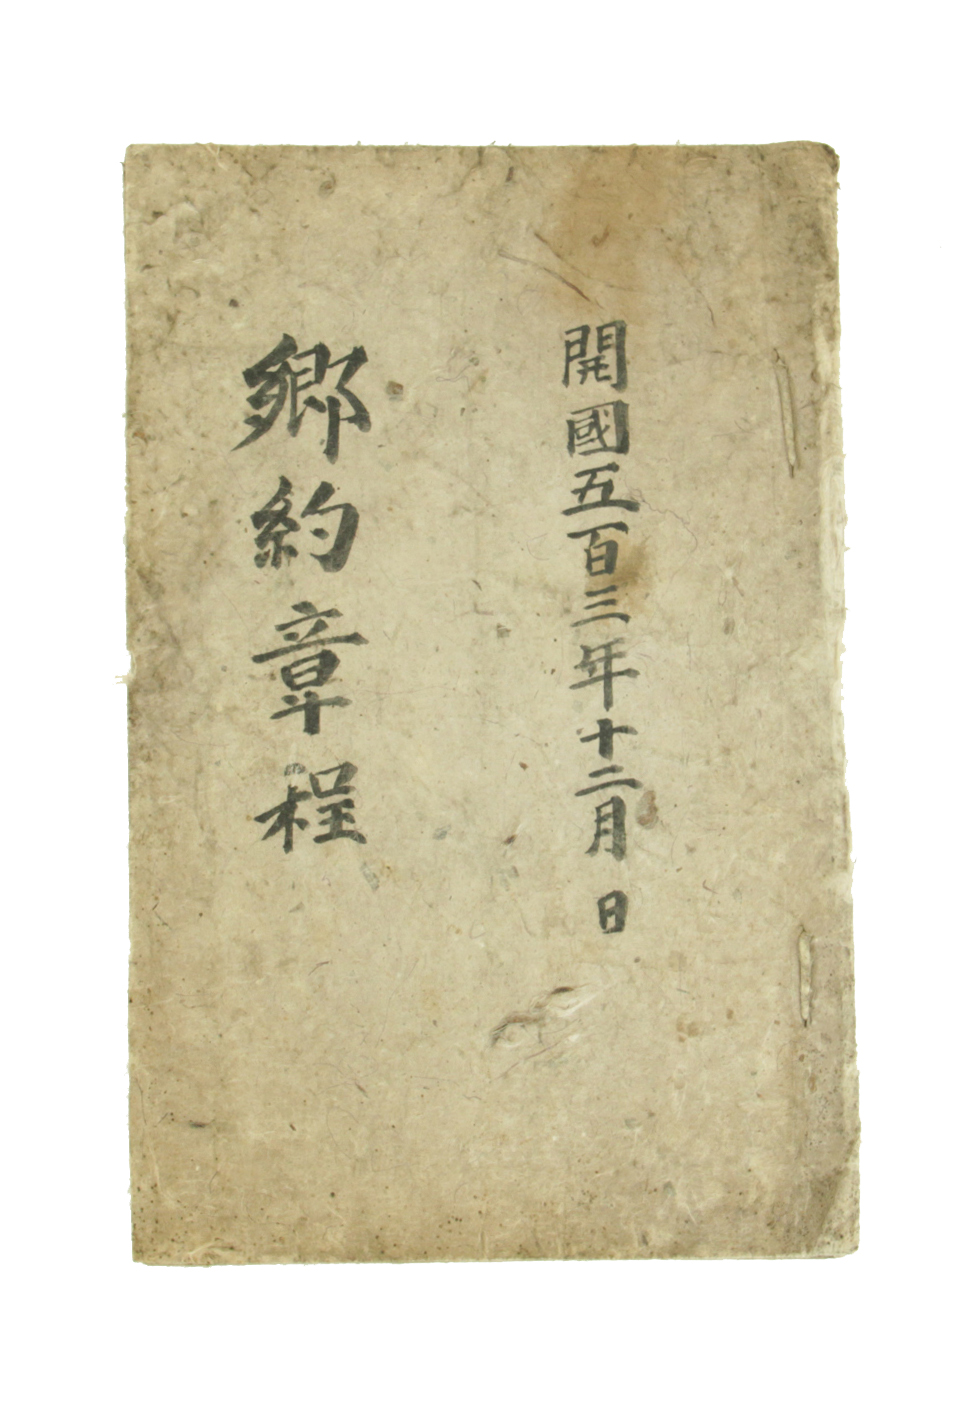 開國五百三年十二月 日
鄉約章程